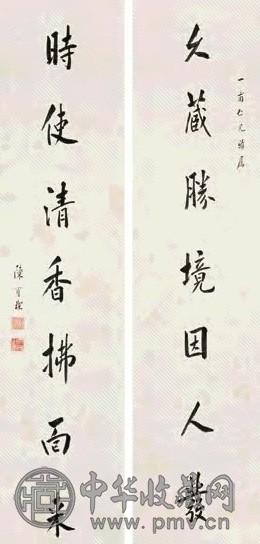 一甫仁兄雅属
久藏勝境因人發
時使清香拂面來
中华收藏网
www.pmv.cn